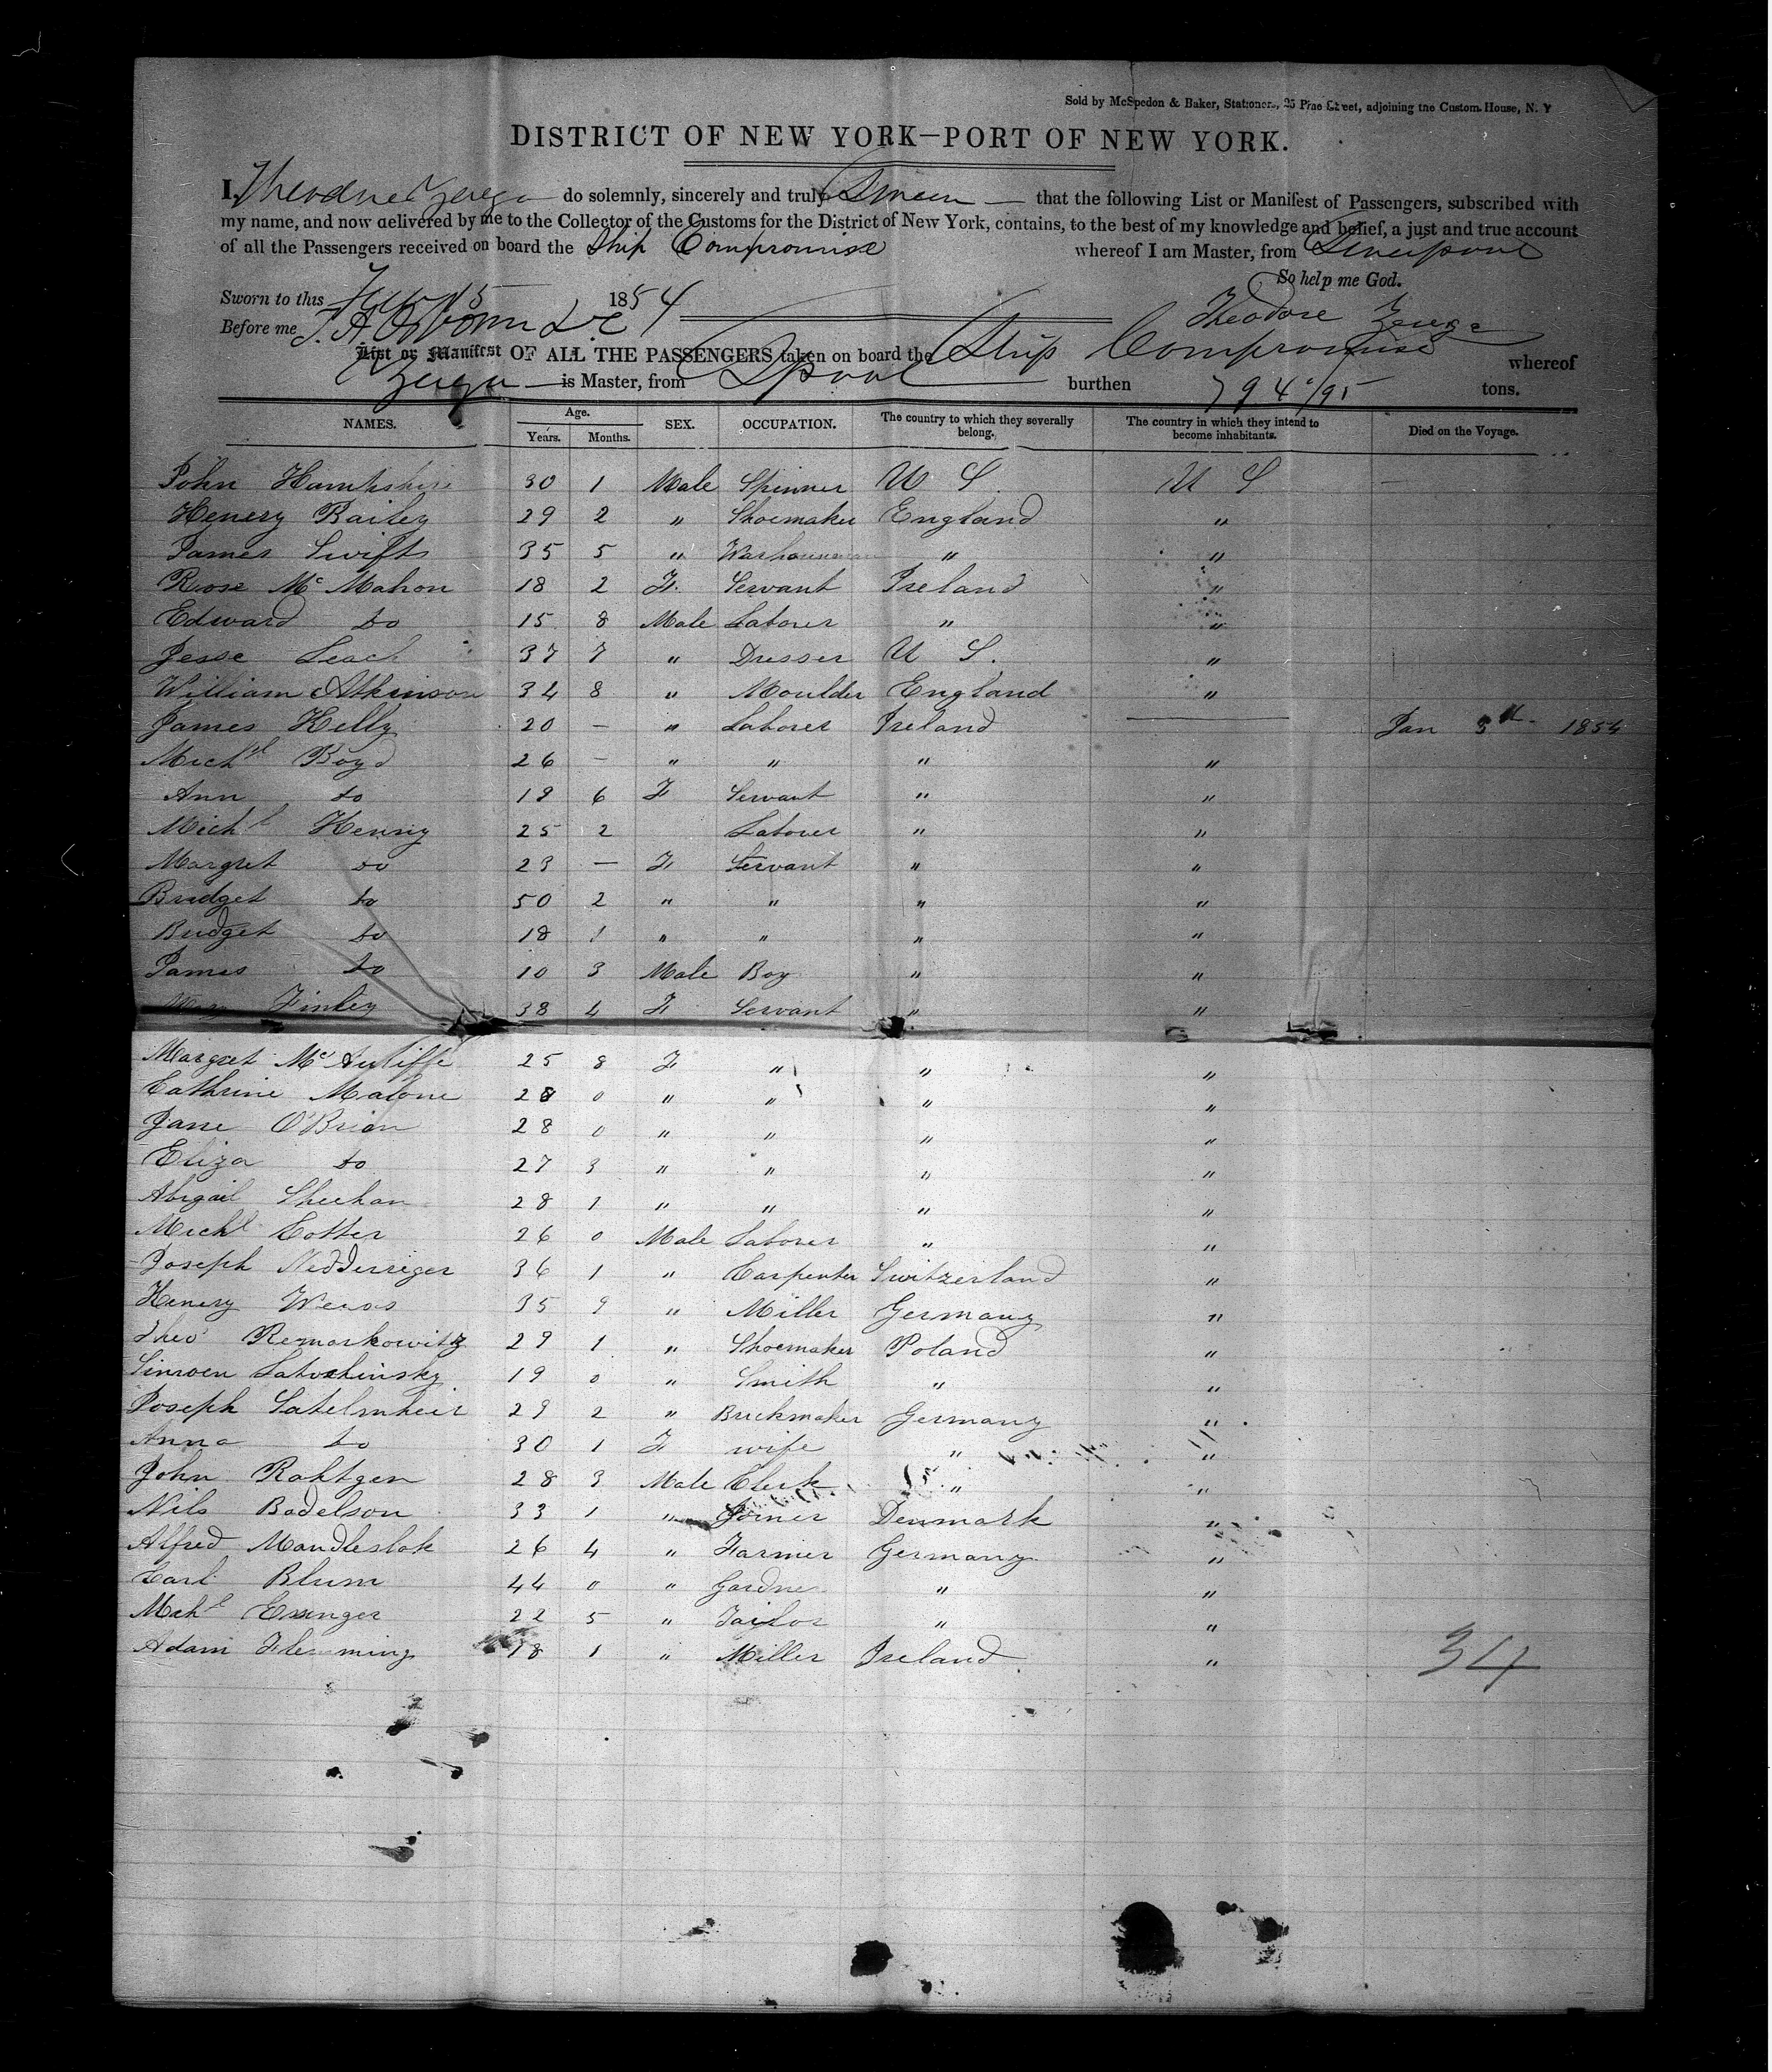 Sold by McSpedon & Baker, Stationers, 25 Pine Street, adjoining the Custom House, N. Y
DISTRICT OF NEW YORK—PORT OF NEW YORK.
I, Theodore Zerega do solemnly, sincerely and truly Swear that the following List or Manifest of Passengers, subscribed with
my name, and now delivered by me to the Collector of the Customs for the District of New York, contains, to the best of my knowledge and belief, a just and true account
of all the Passengers received on board the Ship Compromise whereof I am Master, from Liverpool
So help me God.
Sworn to this 15 1854
Theodore Zerega
Before me
List or Manifest OF ALL THE PASSENGERS taken on board the Ship Compromise whereof
Zerega is Master, from Lpool burthen 794 /95 tons.
NAMES. Age. Years. Months. SEX. OCCUPATION. The country to which they severally belong. The country in which they intend to become inhabitants. Died on the Voyage.
John 30 1 Male Spinner U S. U S
Henery Bailey 29 2 " Shoemaker England "
James Swifts 35 5 " Warhouseman " "
Rose Mc Mahon 18 2 F. Servant Ireland "
Edward do 15 8 Male Laborer " "
Jesse Leach 37 7 " Dresser U S. "
William Atkinson 34 8 " Moulder England "
James Kelly 20 — " Laborer Ireland — Jan 1854
Michl Boyd 26 — " " " "
Ann do 19 6 F Servant " "
Michl Kenny 25 2 Laborer " "
Margret do 23 — F Servant " "
Bridget do 50 2 " " " "
Bridget do 18 1 " " " "
James do 10 3 Male Boy " "
Finley 38 4 F Servant " "
Margret Mc Auliffe 25 8 F " " "
Cathrine Malone 28 0 " " " "
Jane O'Brian 28 0 " " " "
Eliza do 27 3 " " " "
Abigail Sheehan 28 1 " " " "
Michl Cotter 26 0 Male Laborer " "
Joseph Nedderriger 36 1 " Carpenter Switzerland "
Henery 35 9 " Miller Germany "
Theo Remarkowitz 29 1 " Shoemaker Poland "
19 0 " Smith " "
Joseph Satelmheir 29 2 " Brickmaker Germany "
Anna do 30 1 F wife " "
John Rahtgen 28 3 Male Clerk " "
Nils Badelson 33 1 " Joiner Denmark "
Alfred Mandleslok 26 4 " Farmer Germany "
Carl Blum 44 0 " Gardner " "
Michl Essinger 22 5 " Tailor " "
Adam Flemming 18 1 " Miller Ireland "
34